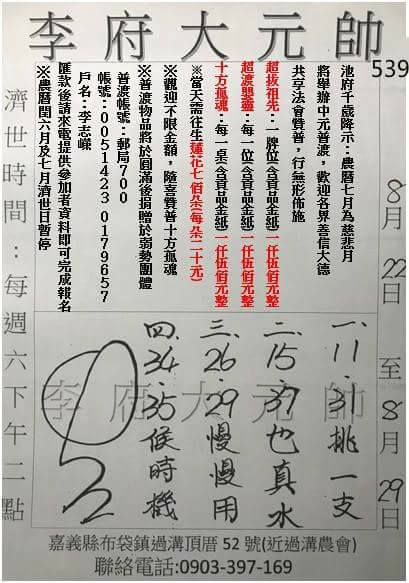 李府大元帥
539
8月22日至8月29日
池府千歲降示：農曆七月為慈悲月
將舉辦中元普渡，歡迎各界善信大德
共享法會贊普，行無形佈施
超拔祖先：一牌位含貢品金紙(一仟伍佰元整
超渡嬰靈：每一位含貢品金紙(一仟伍佰元整
十方孤魂：每一桌含貢品金紙(一仟伍佰元整
※當天需往生蓮花七佰朵(每朵二十元)
※觀迎不限金額，隨喜贊普十方孤魂
※普渡物品將於圓滿後捐贈於弱勢團體
普渡帳號：郵局700
帳號：0051423 0179657
戶名：李志嶸
匯款後請來電提供參加者資料即可完成報名
※農曆閏六月及七月濟世日暫停
濟世時間：每週六下午二點
李府大元帥
一、11.31挑一支
二、15.37也真水
三、26.29慢慢用
四、34.35候時機
嘉義縣布袋鎮過溝頂厝52號(近過溝農會)
聯絡電話:0903-397-169